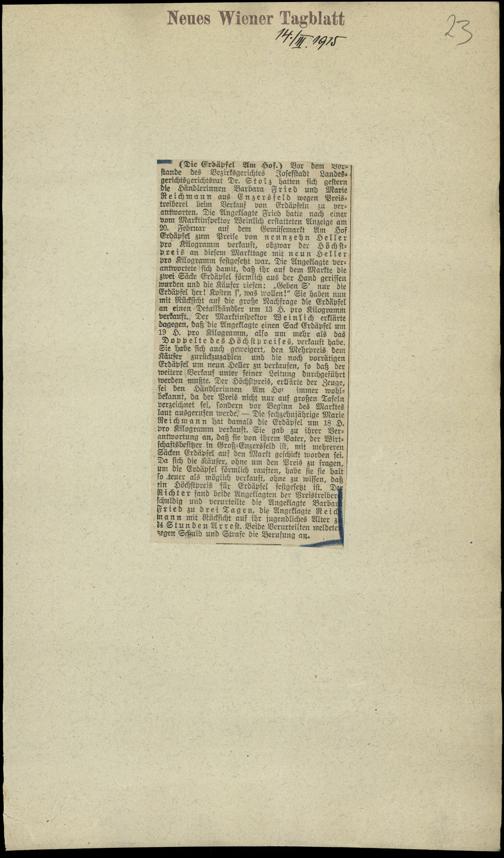 Neues Wiener Tagblatt
14./III. 1915
23
(Die Erdäpfel Am Hof.) Vor dem Vor-
stande des Bezirksgerichtes Josefstadt Landes-
gerichtsgerichtsrat Dr. Stolz hatten sich gestern
die Händlerinnen Barbara Fried und Marie
Reichmann aus Enzersfeld wegen Preis-
treiberei beim Verkauf von Erdäpfeln zu ver-
antworten. Die Angeklagte Fried hatte nach einer
vom Marktinspektor Weinlich erstatteten Anzeige am
20. Februar auf dem Gemüsemarkt Am Hof
Erdäpfel zum Preise von neunzehn Heller
pro Kilogramm verkauft, obzwar der Höchst-
preis an diesem Markttage mit neun Heller
pro Kilogramm festgesetzt war. Die Angeklagte ver-
antwortete sich damit, daß ihr auf dem Markte die
zwei Säcke Erdäpfel förmlich aus der Hand gerissen
wurden und die Käufer riefen: „Geben S' nur die
Erdäpfel her! Kosten s', was wollen!" Sie haben nun
mit Rücksicht auf die große Nachfrage die Erdäpfel
an einen Detailhändler um 13 H. pro Kilogramm
verkauft. Der Marktinspektor Weinlich erklärte
dagegen, daß die Angeklagte einen Sack Erdäpfel um
19 H. pro Kilogramm, also um mehr als das
Doppelte des Höchstpreises, verkauft habe.
Sie habe sich auch geweigert, den Mehrpreis dem
Käufer zurückzuzahlen und die noch vorrätigen
Erdäpfel um neun Heller zu verkaufen, so daß der
weitere Verkauf unter seiner Leitung durchgeführt
werden mußte. Der Höchstpreis, erklärte der Zeuge,
sei den Händlerinnen Am Hof immer wohl-
bekannt, da der Preis nicht nur auf großen Tafeln
verzeichnet sei, sondern vor Beginn des Marktes
laut ausgerufen werde. — Die sechzehnjährige Marie
Reichmann hat damals die Erdäpfel um 18 H.
pro Kilogramm verkauft. Sie gab zu ihrer Ver-
antwortung an, daß sie von ihrem Vater, der Wirt-
schaftsbesitzer in Groß-Enzersfeld ist, mit mehreren
Säcken Erdäpfel auf den Markt geschickt worden sei.
Da sich die Käufer, ohne um den Preis zu fragen,
um die Erdäpfel förmlich rauften, habe sie sie halt
so teuer als möglich verkauft, ohne zu wissen, daß
ein Höchstpreis für Erdäpfel festgesetzt ist. Der
Richter fand beide Angeklagten der Preistreiberei
schuldig und verurteilte die Angeklagte Barbara
Fried zu drei Tagen, die Angeklagte Reich-
mann mit Rücksicht auf ihr jugendliches Alter zu
24 Stunden Arrest. Beide Verurteilten meldeten
gegen Schuld und Strafe die Berufung an.